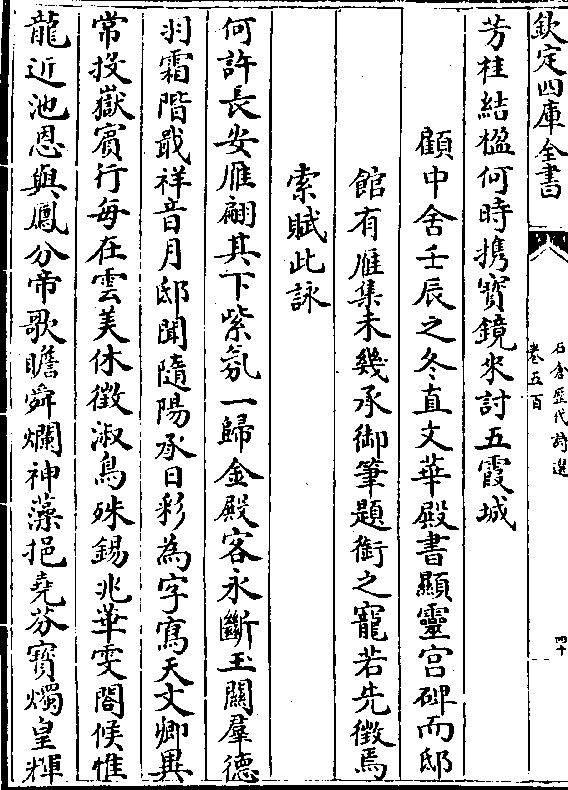 欽定四庫全書
石倉歷代詩選
卷五百
四十
芳桂結楹何時攜寶鏡來討五霞城
顧中舍壬辰之冬直文華殿書顯靈宫碑而邸
館有雁集未幾承御筆題銜之寵若先徵焉
索賦此詠
何許長安雁翩其下紫氛一歸金殿客永斷玉關羣德
羽霜階戢祥音月邸聞隨陽承日彩為字寫天文卿異
常投嶽賓行每在雲美休徵淑鳥殊錫兆華雯閣候惟
龍近池恩與鳳分帝歌瞻舜爛神藻挹堯芬寶燭皇輝